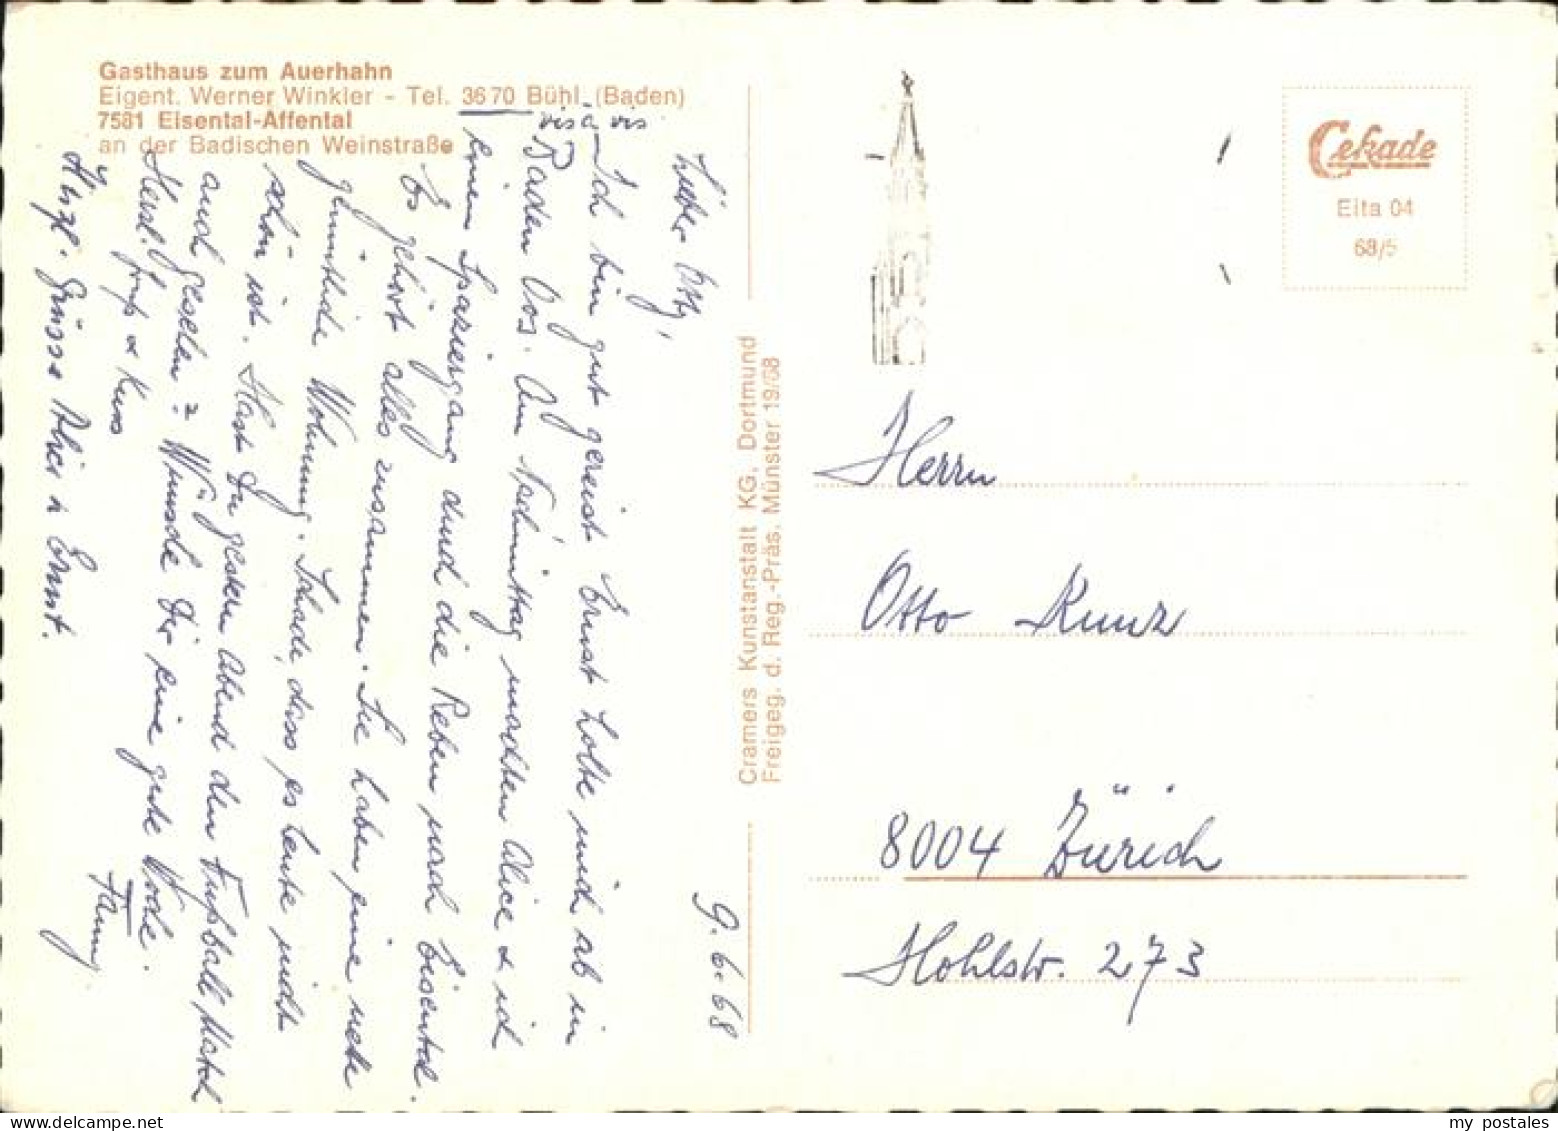 Gasthaus zum Auerhahn
Eigent. Werner Winkler - Tel. 3670 Bühl (Baden)
7581 Eisental-Affental
an der Badischen Weinstraße
9. 6. 68
Lieber Otty,
Ich bin gut gereist Ernst holte mich ab in
vis à vis
Baden Oos. Am Nachmittag machten Alice & ich
einen Spaziergang durch die Reben nach Eisental.
Es gehört alles zusammen. Sie haben eine nette
gemütliche Wohnung. Schade, dass es heute nicht
schön ist. Hast Du gestern Abend den Fußball Match
auch gesehen? Wünsche Dir eine gute Woche.
Herzl. Gruß & Kuss
Fanny
Herzl. Grüsse Alice & Ernst.
Cramers Kunstanstalt KG, Dortmund
Freigeg. d. Reg.-Präs. Münster 19/68
Cekade
Elta 04
68/5
Herrn
Otto Kunz
8004 Zürich
Hohlstr. 273
my postales